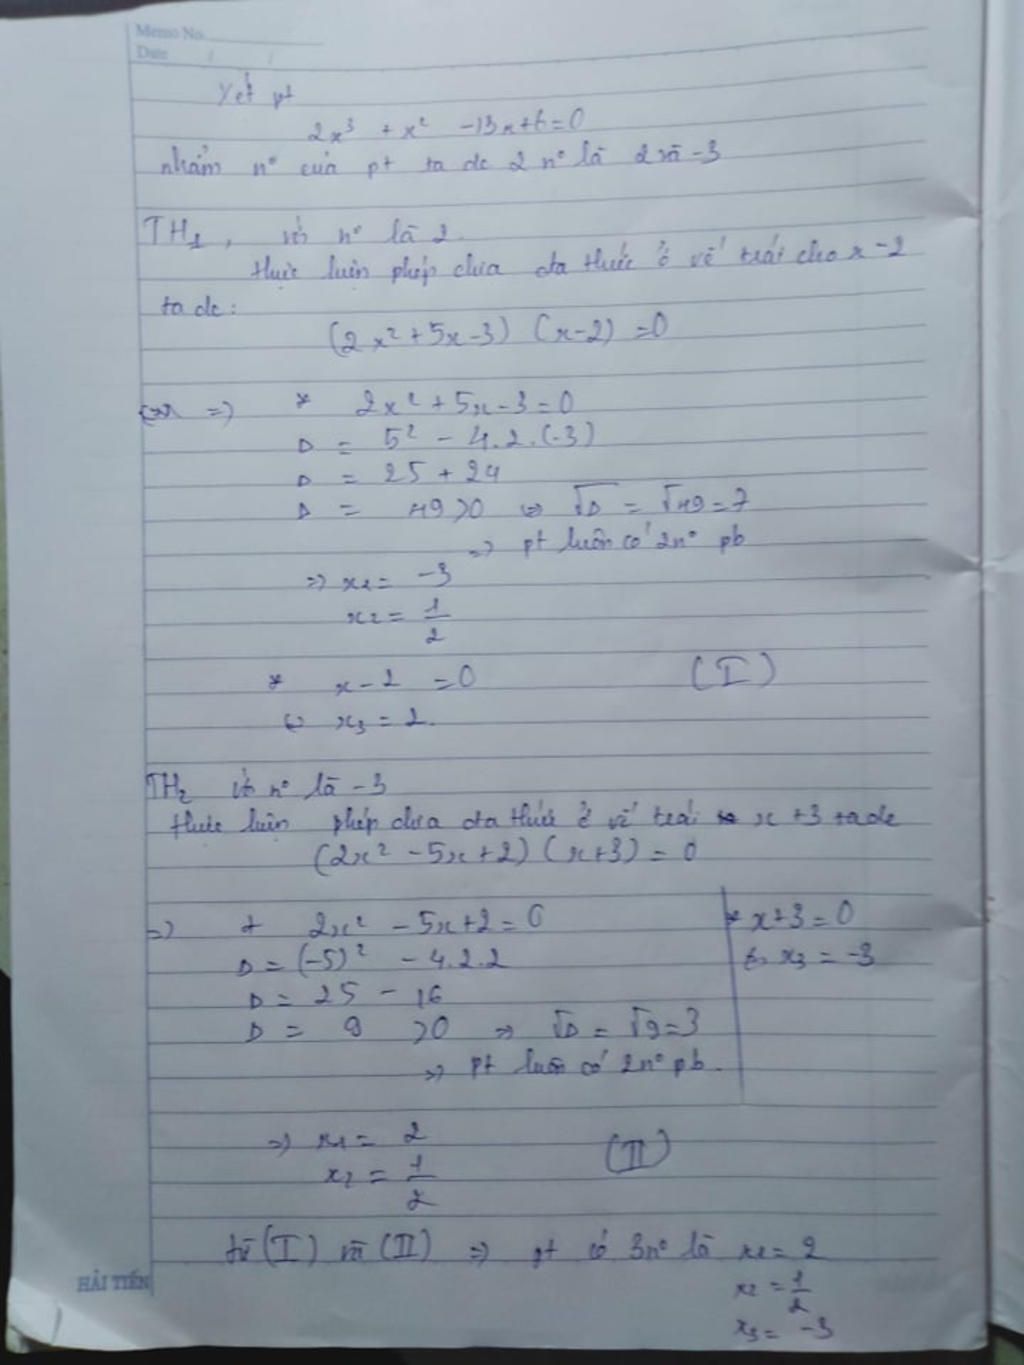 Memo No.
Date / /
Xét pt
2x³ + x² - 13x + 6 = 0
nhẩm n° của pt ta dc 2 n° là 2 và -3
TH₁, với n° là 2.
thực hiện phép chia đa thức ở vế trái cho x - 2
ta dc:
(2x² + 5x - 3) (x - 2) = 0
=> * 2x² + 5x - 3 = 0
Δ = 5² - 4.2.(-3)
Δ = 25 + 24
Δ = 49 > 0 => √Δ = √49 = 7
=> pt luôn có 2n° pb
=> x₁ = -3
x₂ = 1/2
* x - 2 = 0 (I)
⇔ x₃ = 2.
TH₂ với n° là -3
thực hiện phép chia đa thức ở vế trái x + 3 ta dc
(2x² - 5x + 2) (x + 3) = 0
=> + 2x² - 5x + 2 = 0 * x + 3 = 0
Δ = (-5)² - 4.2.2 ⇔ x₃ = -3
Δ = 25 - 16
Δ = 9 > 0 => √Δ = √9 = 3
=> pt luôn có 2n° pb.
=> x₁ = 2 (II)
x₂ = 1/2
từ (I) và (II) => pt có 3n° là x₁ = 2
x₂ = 1/2
x₃ = -3
HẢI TIẾN